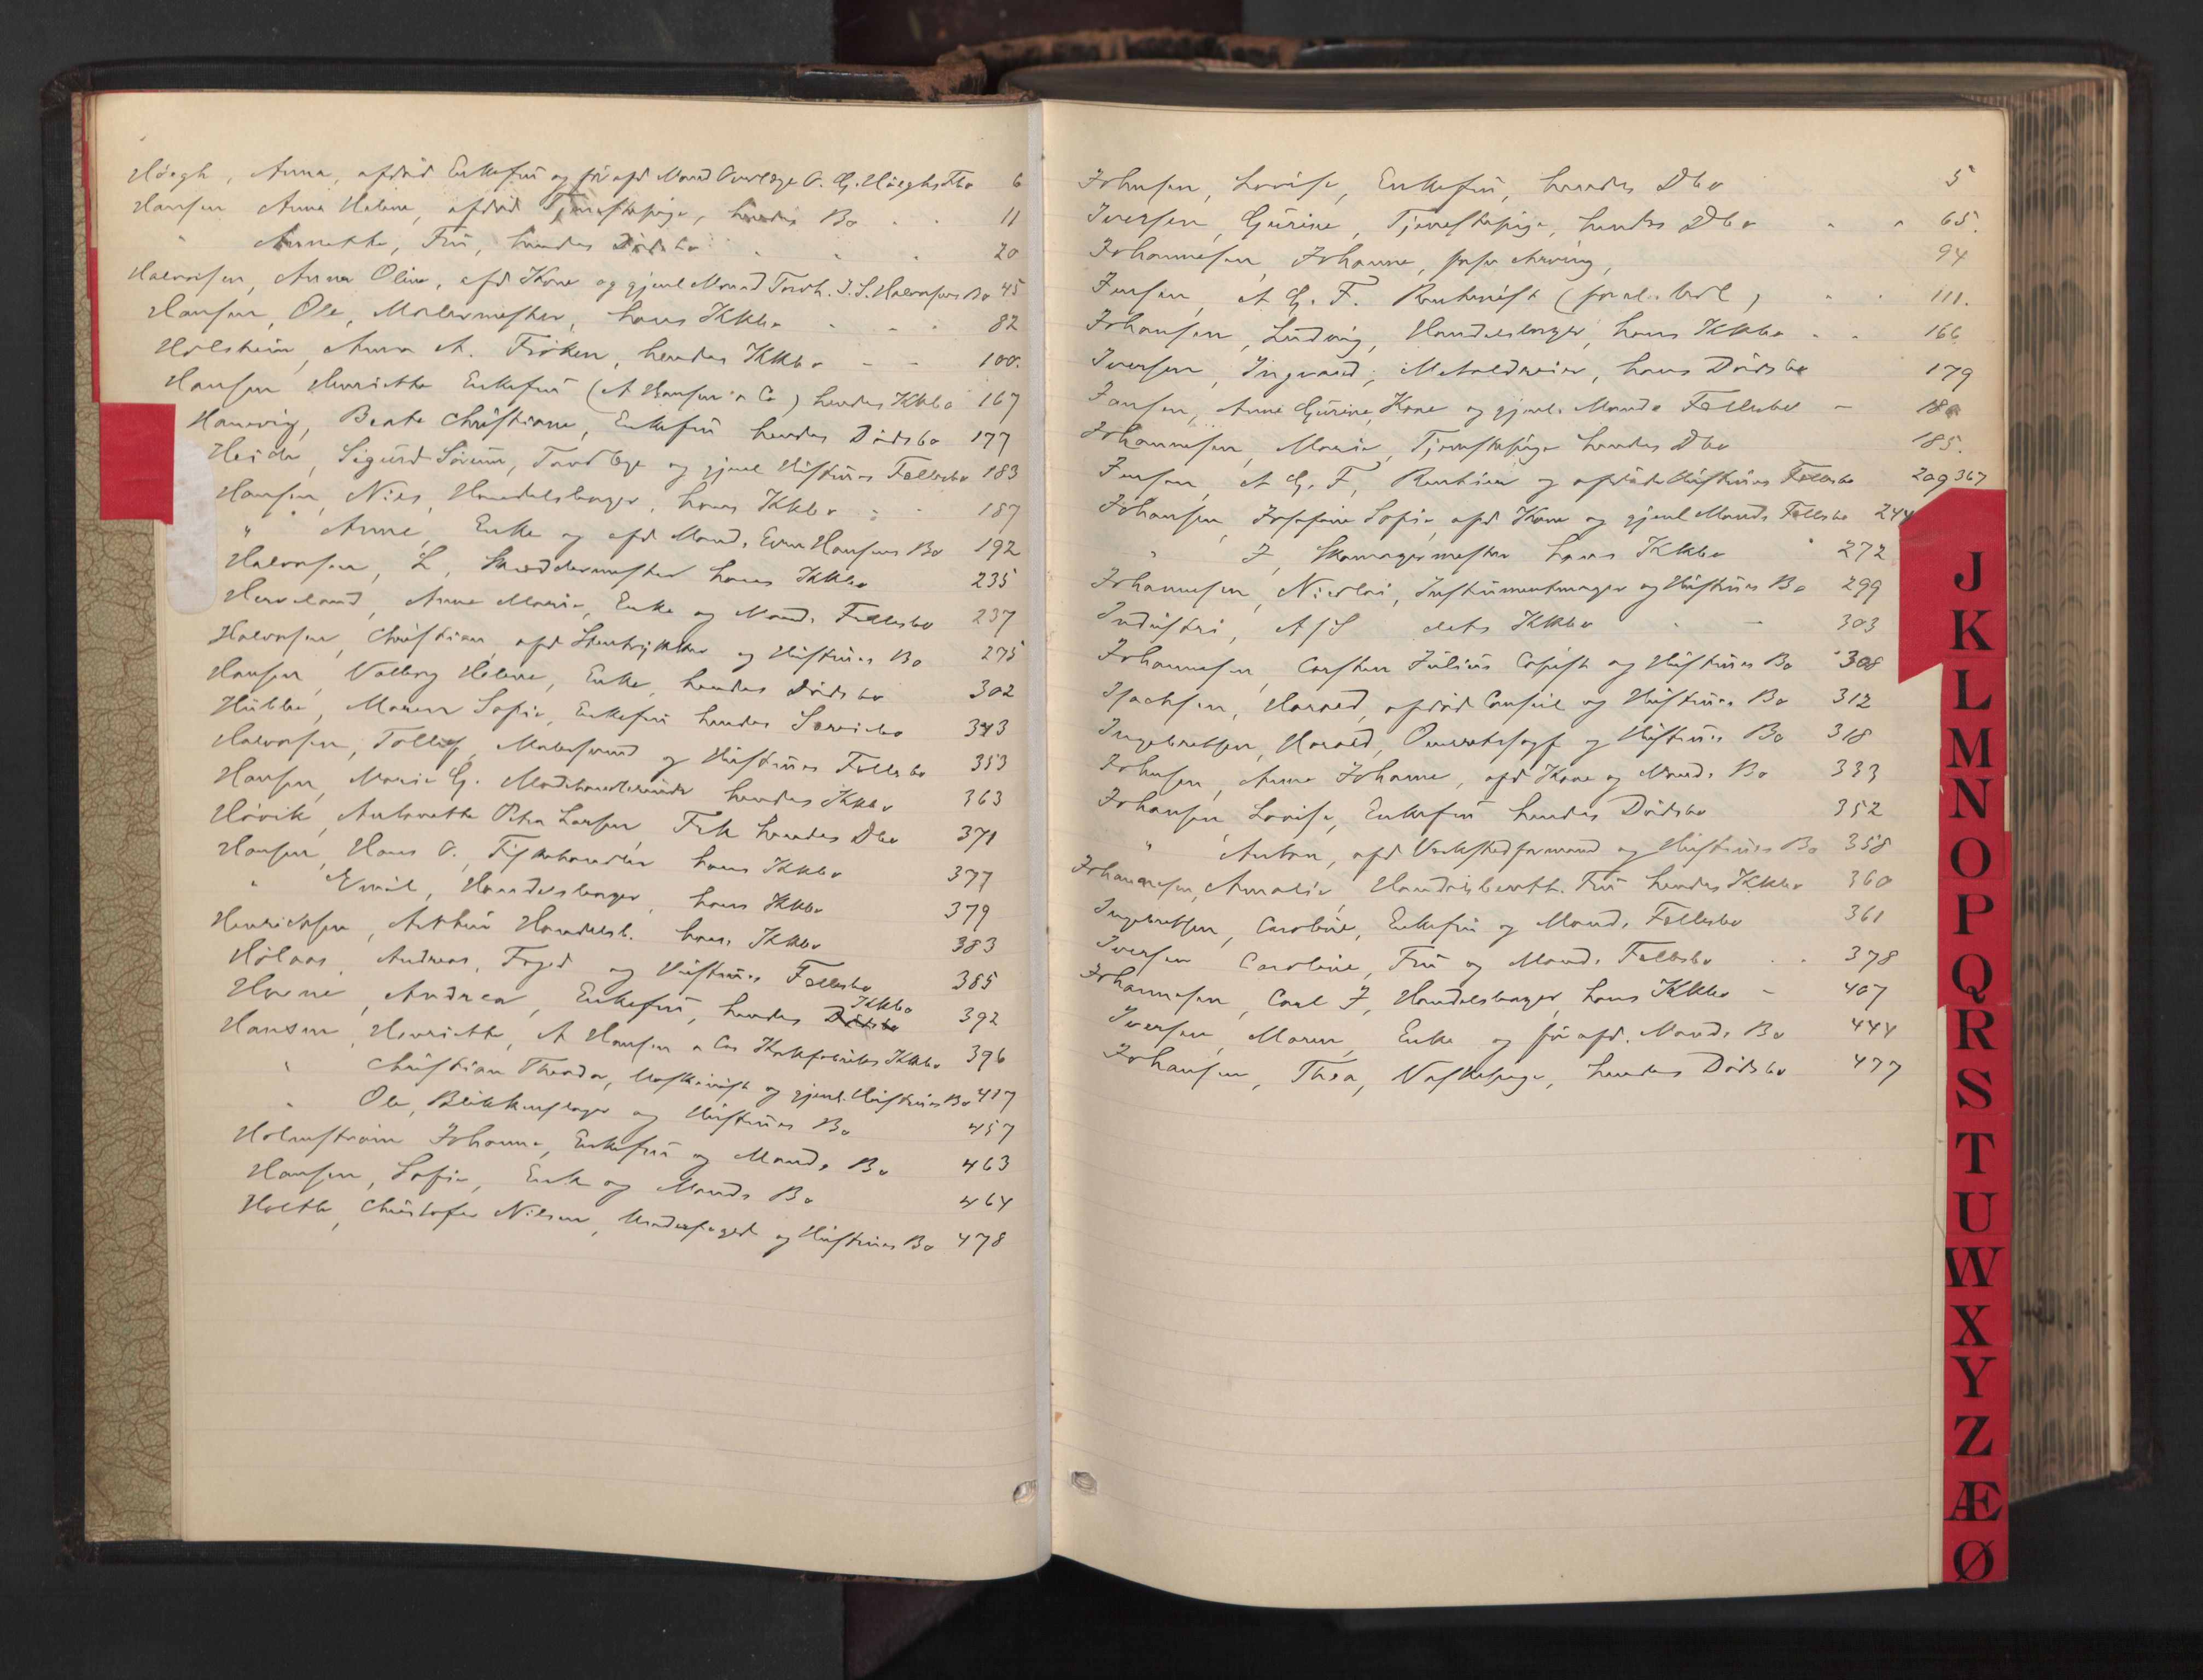 Høegh, Anna, afdød Enkefru og før afd Mand Overlæge O. G. Høeghs Fbo 6
Hansen Anna Helene, afdød Tjenestepige, hendes Bo 11
" Annette, Fru, hendes Dødsbo 20
Halvorsen, Anna Oline, afd Kone og gjenl Mand J. S. Halvorsens Bo 45
Hansen, Ole, Malermester, hans Kkbo 82
Holsheim, Anna A. Frøken, hendes Kkbo 100.
Hansen Henriette Enkefru (A Hansen & Co) hendes Kkbo 167
Hanevig, Beate Christiane, Enkefru hendes Dødsbo 177
Heide, Sigurd Sørum, Tandlæge og gjenl Hustrues Fællesbo 183
Hansen, Nils, Handelsborger, hans Kkbo 187
" Anne, Enke og afd Mand, Even Hansens Bo 192
Halvorsen, L, Skræddermester hans Kkbo 235
Anne Marie, Enke og Mands Fællesbo 237
Halvorsen, Christian, afd Stentrykker og Hustrues Bo 275
Hansen, Valborg Helene, Enke, hendes Dødsbo 302
Hübbe, Maren Sofie, Enkefru hendes 343
Halvorsen, Tollef, og Hustrues Fællesbo 353
Hansen, Marie G. Modehandlerinde hendes Kkbo 363
Høvik, Antonette Petra Larsen Frk hendes Dbo 371
Hansen, Hans O., Fiskehandler hans Kkbo 377
" Emil, Handelsborger, hans Kkbo 379
Henrichsen, Arthur Handelsb. hans Kkbo 383
Hølaas, Andreas, Foged og Hustrues Fællesbo 385
Horne, Andrea, Enkefru, hendes Dødsbo Kkbo 392
Hansen, Henriette, A Hansen & Cos Kkbo 396
" Christian Theodor, Maskinist og gjenl. Hustrues Bo 417
" Ole, Blikkenslager og Hustrues Bo 457
Holmstrøm Johanne, Enkefru og Mands Bo 463
Hansen, Sofie, Enke og Mands Bo 464
Holth, Christofer Nilsen, Underfoged og Hustrues Bo 478
Johnsen, Lovise, Enkefru, hendes Dbo 5
Iversen, Gurine, Tjenestepige, hendes Dbo 65.
Johannesen, Johanne, 94
Jensen, A G. F. Rentenist 111.
Johansen, Ludvig, Handelsborger, hans Kkbo 166
Iversen, Ingvald, Metaldreier, hans Dødsbo 179
Jansen, Anne Gurine, Kone og gjenl. Mands Fællesbo 180
Johannesen, Marie, Tjenestepige hendes Dbo 185.
Jensen, A G. F, Rentier og afdøde Hustrues Fællesbo 209 367
Johansen, Josefine Sofie, afd Kone og gjenl Mands Fællesbo 244
" J, Skomagermester hans Kkbo 272
Johannesen, Nicolai, Instrumentmager og Hustrues Bo 299
Industri, A/S dets Kkbo 303
Johannesen, Carsten Julius Copist og Hustrues Bo 308
Isachsen, Harald, afdød Consul og Hustrues Bo 312
Ingebretsen, Harald, og Hustrues Bo 318
Johnsen, Anne Johanne, afd Kone og Mands Bo 333
Johansen Lovise, Enkefru hendes Dødsbo 352
" Anton, afd Verkstedformand og Hustrues Bo 358
Johannesen, Amalie, Handelsberett. Fru hendes Kkbo 360
Ingebretsen, Caroline, Enkefru og Mands Fællesbo 361
Iversen Caroline, Fru og Mands Fællesbo 378
Johannesen, Carl J, Handelsborger, hans Kkbo 407
Iversen, Maren, Enke og før afd. Mands Bo 444
Johansen, Thea, Vaskepige, hendes Dødsbo 477
J
K
L
M
N
O
P
Q
R
S
T
U
W
X
Y
Z
Æ
Ø